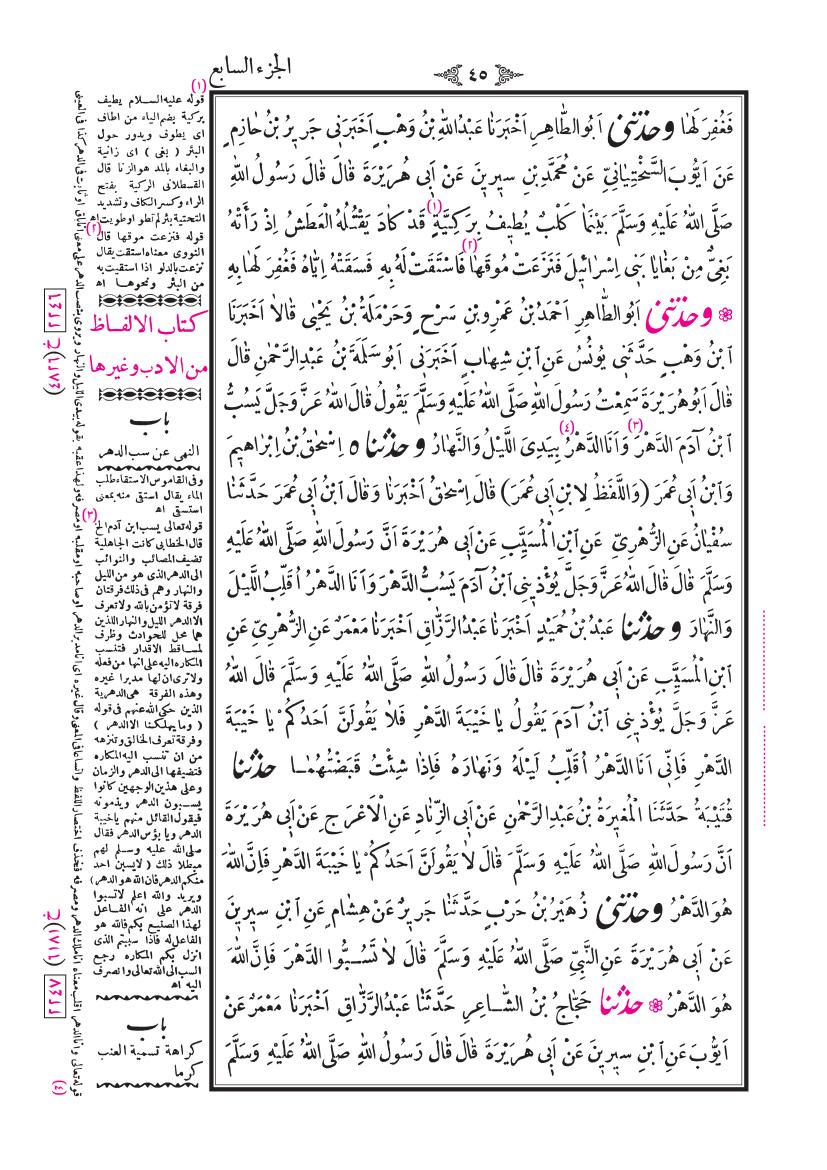 الجزء السابع
٤٥
فَغُفِرَ لَهَا وحَدَّثَنِي اَبُوالطَّاهِرِ اَخْبَرَنَا عَبْدُاللهِ بْنُ وَهْبٍ اَخْبَرَنِي جَرِيرُ بْنُ حَازِمٍ
عَنْ اَيُّوبَ السَّخْتِيَانِيِّ عَنْ مُحَمَّدِ بْنِ سِيرِينَ عَنْ اَبِي هُرَيْرَةَ قَالَ قَالَ رَسُولُ اللهِ
صَلَّى اللهُ عَلَيْهِ وَسَلَّمَ بَيْنَمَا كَلْبٌ يُطِيفُ بِرَكِيَّةٍ (١) قَدْ كَادَ يَقْتُلُهُ الْعَطَشُ اِذْ رَأَتْهُ
بَغِيٌّ مِنْ بَغَايَا بَنِي اِسْرَائِيلَ فَنَزَعَتْ مُوقَهَا (٢) فَاسْتَقَتْ لَهُ بِهِ فَسَقَتْهُ اِيَّاهُ فَغُفِرَ لَهَا بِهِ
وحَدَّثَنِي اَبُوالطَّاهِرِ اَحْمَدُ بْنُ عَمْرِو بْنِ سَرْحٍ وَحَرْمَلَةُ بْنُ يَحْيَى قَالَا اَخْبَرَنَا
ابْنُ وَهْبٍ حَدَّثَنِي يُونُسُ عَنِ ابْنِ شِهَابٍ اَخْبَرَنِي اَبُو سَلَمَةَ بْنُ عَبْدِالرَّحْمٰنِ قَالَ
قَالَ اَبُوهُرَيْرَةَ سَمِعْتُ رَسُولَ اللهِ صَلَّى اللهُ عَلَيْهِ وَسَلَّمَ يَقُولُ قَالَ اللهُ عَزَّ وَجَلَّ يَسُبُّ
ابْنُ آدَمَ الدَّهْرَ (٣) وَاَنَا الدَّهْرُ (٤) بِيَدِيَ اللَّيْلُ وَالنَّهَارُ وحَدَّثَنَاه اِسْحٰقُ بْنُ اِبْرَاهِيمَ
وَابْنُ اَبِي عُمَرَ (وَاللَّفْظُ لِابْنِ اَبِي عُمَرَ) قَالَ اِسْحٰقُ اَخْبَرَنَا وَقَالَ ابْنُ اَبِي عُمَرَ حَدَّثَنَا
سُفْيَانُ عَنِ الزُّهْرِيِّ عَنِ ابْنِ الْمُسَيَّبِ عَنْ اَبِي هُرَيْرَةَ اَنَّ رَسُولَ اللهِ صَلَّى اللهُ عَلَيْهِ
وَسَلَّمَ قَالَ قَالَ اللهُ عَزَّ وَجَلَّ يُؤْذِينِي ابْنُ آدَمَ يَسُبُّ الدَّهْرَ وَاَنَا الدَّهْرُ اُقَلِّبُ اللَّيْلَ
وَالنَّهَارَ وحَدَّثَنَا عَبْدُ بْنُ حُمَيْدٍ اَخْبَرَنَا عَبْدُالرَّزَّاقِ اَخْبَرَنَا مَعْمَرٌ عَنِ الزُّهْرِيِّ عَنِ
ابْنِ الْمُسَيَّبِ عَنْ اَبِي هُرَيْرَةَ قَالَ قَالَ رَسُولُ اللهِ صَلَّى اللهُ عَلَيْهِ وَسَلَّمَ قَالَ اللهُ
عَزَّ وَجَلَّ يُؤْذِينِي ابْنُ آدَمَ يَقُولُ يَا خَيْبَةَ الدَّهْرِ فَلَا يَقُولَنَّ اَحَدُكُمْ يَا خَيْبَةَ
الدَّهْرِ فَاِنِّي اَنَا الدَّهْرُ اُقَلِّبُ لَيْلَهُ وَنَهَارَهُ فَاِذَا شِئْتُ قَبَضْتُهُمَا حَدَّثَنَا
قُتَيْبَةُ حَدَّثَنَا الْمُغِيرَةُ بْنُ عَبْدِالرَّحْمٰنِ عَنْ اَبِي الزِّنَادِ عَنِ الْاَعْرَجِ عَنْ اَبِي هُرَيْرَةَ
اَنَّ رَسُولَ اللهِ صَلَّى اللهُ عَلَيْهِ وَسَلَّمَ قَالَ لَا يَقُولَنَّ اَحَدُكُمْ يَا خَيْبَةَ الدَّهْرِ فَاِنَّ اللهَ
هُوَ الدَّهْرُ وحَدَّثَنِي زُهَيْرُ بْنُ حَرْبٍ حَدَّثَنَا جَرِيرٌ عَنْ هِشَامٍ عَنِ ابْنِ سِيرِينَ
عَنْ اَبِي هُرَيْرَةَ عَنِ النَّبِيِّ صَلَّى اللهُ عَلَيْهِ وَسَلَّمَ قَالَ لَا تَسُبُّوا الدَّهْرَ فَاِنَّ اللهَ
هُوَ الدَّهْرُ حَدَّثَنَا حَجَّاجُ بْنُ الشَّاعِرِ حَدَّثَنَا عَبْدُالرَّزَّاقِ اَخْبَرَنَا مَعْمَرٌ عَنْ
اَيُّوبَ عَنِ ابْنِ سِيرِينَ عَنْ اَبِي هُرَيْرَةَ قَالَ قَالَ رَسُولُ اللهِ صَلَّى اللهُ عَلَيْهِ وَسَلَّمَ
(١)
قوله عليه السلام يطيف
بركية بضم الياء من اطاف
اى يطوف ويدور حول
البئر (بغى) اى زانية
والبغاء بالمد هو الزنا قال
القسطلانى الركية بفتح
الراء وكسر الكاف وتشديد
التحتية بئر لم تطو او طويت اه
(٢)
قوله فنزعت موقها قال
النووى معناه استقت يقال
نزعت بالدلو اذا استقيت به
من البئر ونحوها اه
كتاب الالفاظ
من الادب وغيرها
باب
النهى عن سب الدهر
وفى القاموس الاستقاء طلب
الماء يقال استقى منه بمعنى
استسقى اه
(٣)
قوله تعالى يسب ابن آدم الخ
قال الخطابى كانت الجاهلية
تضيف المصائب والنوائب
الى الدهر الذى هو من الليل
والنهار وهم فى ذلك فرقتان
فرقة لا تؤمن بالله ولا تعرف
الا الدهر الليل والنهار اللذين
هما محل للحوادث وظرف
لمساقط الاقدار فتنسب
المكاره اليه على انها من فعله
ولا ترى ان لها مدبرا غيره
وهذه الفرقة هى الدهرية
الذين حكى الله عنهم فى قوله
(وما يهلكنا الا الدهر)
وفرقة تعرف الخالق وتنزهه
من ان تنسب اليه المكاره
فتضيفها الى الدهر والزمان
وعلى هذين الوجهين كانوا
يسبون الدهر ويذمونه
فيقول القائل منهم ياخيبة
الدهر ويا بؤس الدهر فقال
صلى الله عليه وسلم لهم
مبطلا ذلك (لا يسبن احد
منكم الدهر فان الله هو الدهر)
ويريد والله اعلم لا تسبوا
الدهر على انه الفاعل
لهذا الصنيع بكم فالله هو
الفاعل له فاذا سببتم الذى
انزل بكم المكاره رجع
السب الى الله تعالى وانصرف
اليه اه
باب
كراهة تسمية العنب
كرما
(٤)